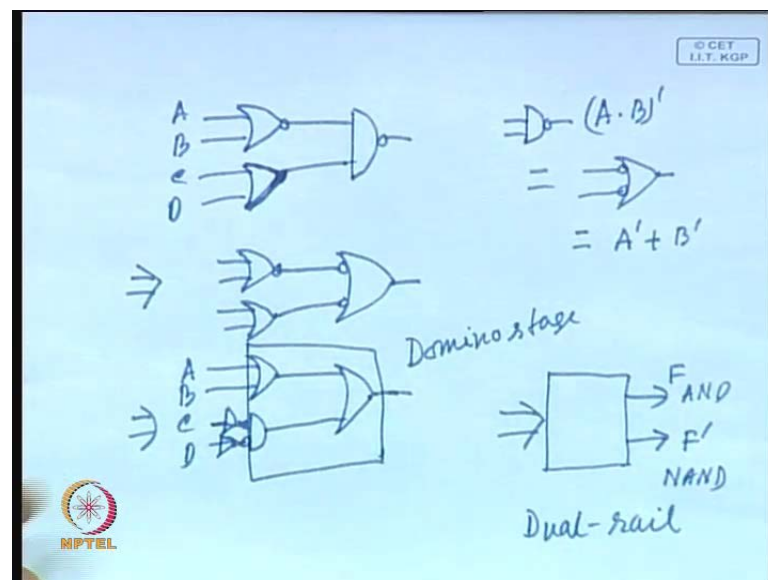 © CET
I.I.T. KGP
A
B
C
D
(A · B)'
=
= A' + B'
⇒
Domino stage
A
B
⇒ C
D
⇒
F
AND
F'
NAND
Dual-rail
NPTEL